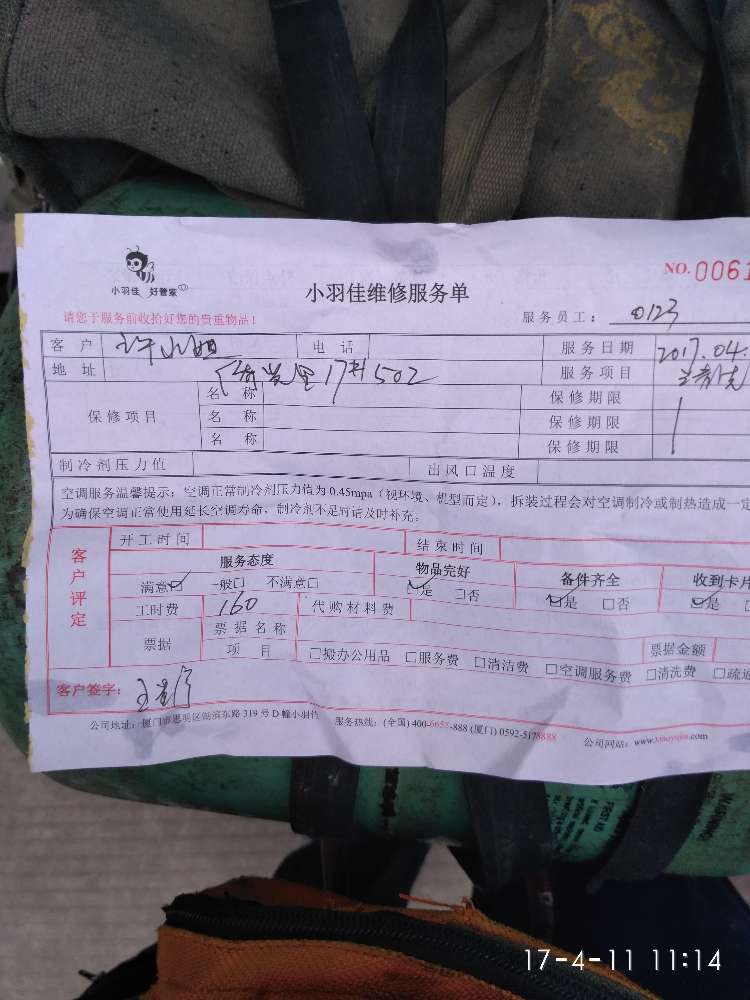 小羽佳 好管家
小羽佳维修服务单
NO. 0061
请您于服务前收拾好您的贵重物品!
服务员工: 0123
客户 许小姐 电话 服务日期 2017.04.
地址 17#502 服务项目
名称 保修期限
保修项目 名称 保修期限
名称 保修期限
制冷剂压力值 出风口温度
空调服务温馨提示:空调正常制冷剂压力值为0.45mpa(视环境、机型而定),拆装过程会对空调制冷或制热造成一定
为确保空调正常使用延长空调寿命,制冷剂不足时请及时补充。
客户评定
开工时间 结束时间
服务态度 物品完好 备件齐全 收到卡片
满意☑ 一般□ 不满意□ ☑是 □否 ☑是 □否 ☑是
工时费 160 代购材料费
票据 票据名称 票据金额
项目 □搬办公用品 □服务费 □清洁费 □空调服务费 □清洗费 □疏通
客户签字:
公司地址:厦门市思明区湖滨东路319号D幢小羽佳 服务热线:(全国)400-6655-888 (厦门)0592-5178888 公司网站:www.xiaoyujia.com
WARNING
FIRST AID
17-4-11 11:14